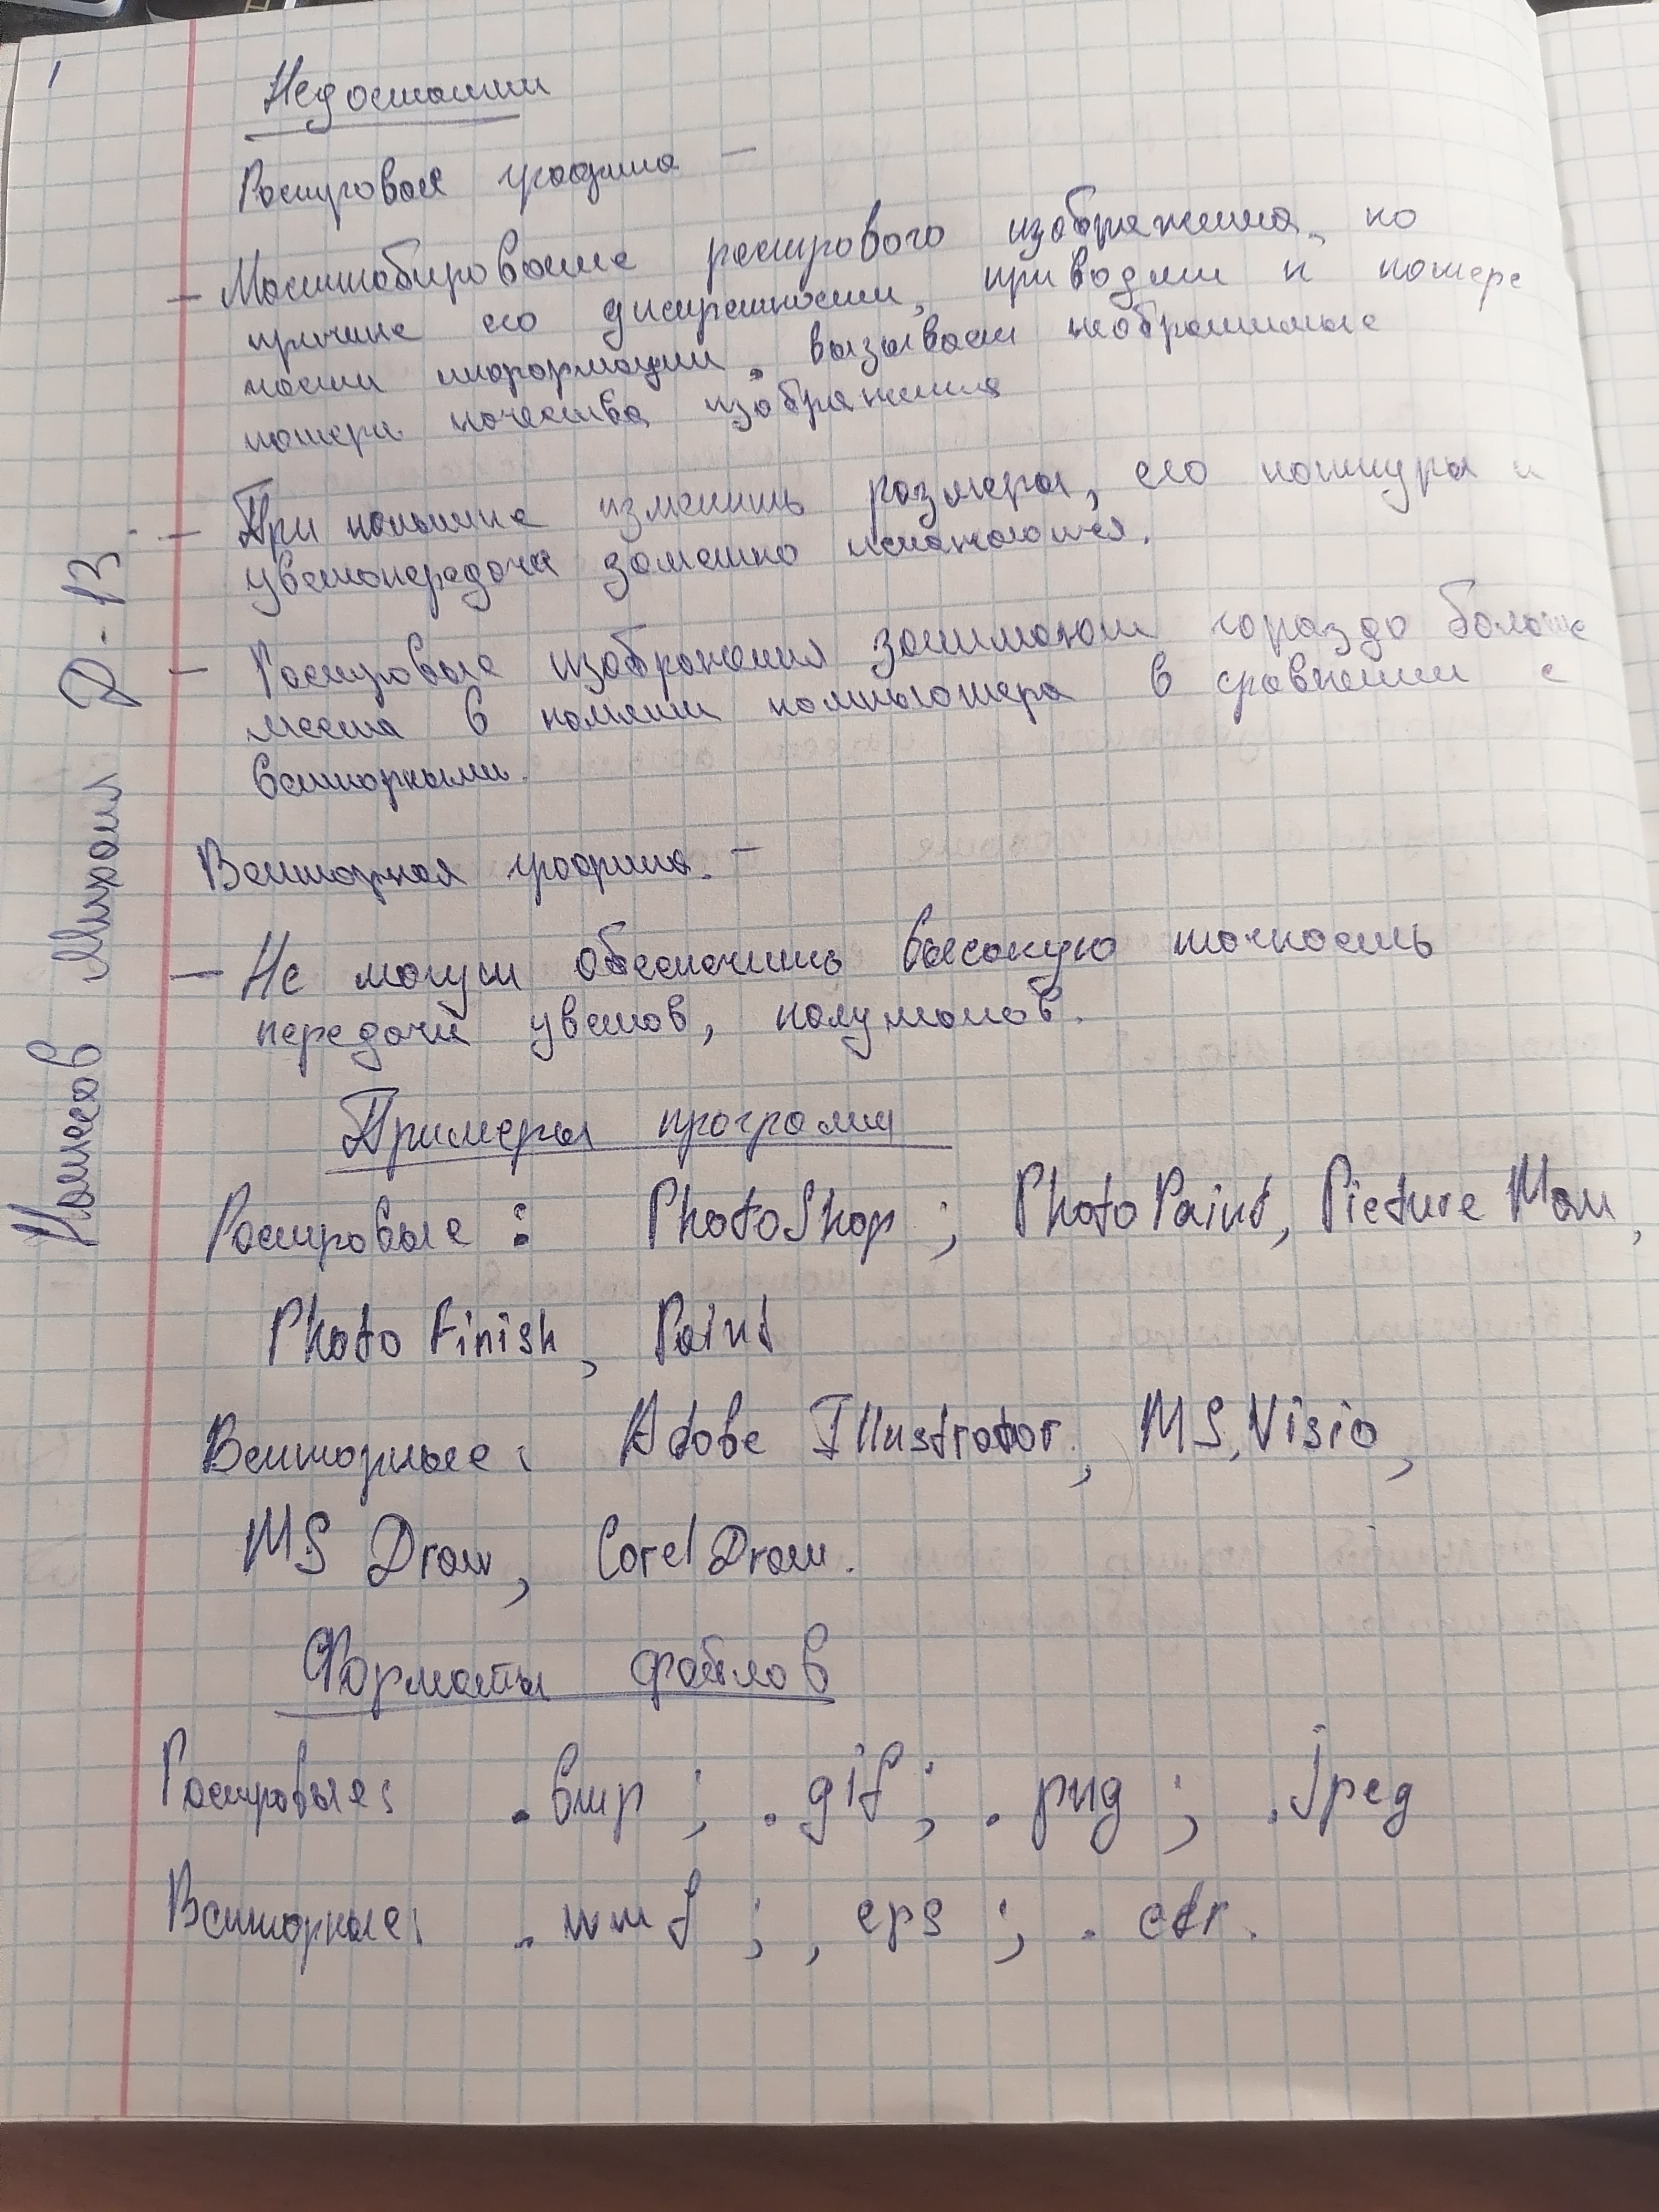 Недостатки
Растровая графика —
— Масштабирование растрового изображения, по
причине его дискретности, приводит к потере
части информации, вызывает необратимые
потери качества изображения
— При попытке изменить размеры, его контуры и
цветопередача заметно искажаются.
— Растровые изображения занимают гораздо больше
места в памяти компьютера в сравнении с
векторными.
Векторная графика. —
— Не могут обеспечить высокую точность
передачи цветов, полутонов.
Примеры программ
Растровые : PhotoShop ; Photo Paint, Picture Man,
Photo Finish, Paint
Векторные: Adobe Illustrator, MS, Visio,
MS Draw, Corel Draw.
Форматы файлов
Растровые: .bmp ; .gif ; .png ; .jpeg
Векторные: .wmf ; , eps ; . cdr.
Михаил Д-13